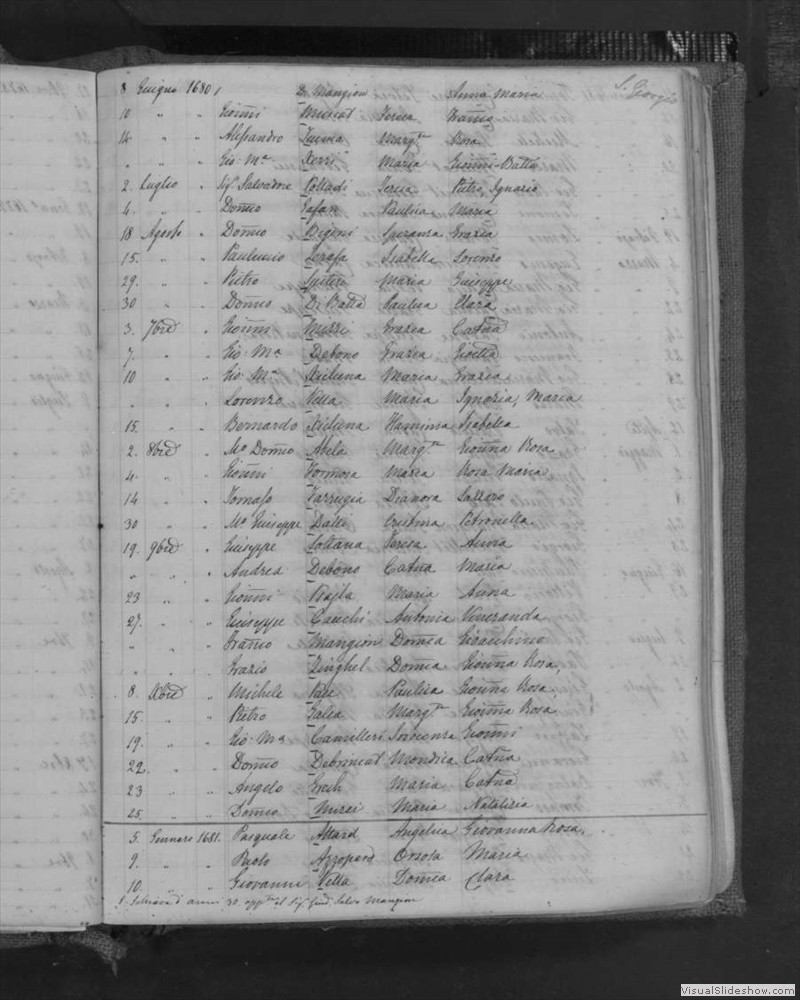 S. Giorgio
8 Giugno 1680 1 De Mangion Anna Maria
10 " " Gioñni Muscat Teresa
14 " " Alessandro Zamma Margta Rosa
" " " Gio Ma Xerri Maria Gioñni-Batta
2. Luglio " Sigr Salvadore Teresa Pietro, Ignazio
4. " " Domco Paulina Maria
18 Agosto " Domco Speranza Grazia
15. " " Paulucio Isabella Lorenzo
29. " " Pietro Spiteri Maria Giuseppe
30 " " Domco Di Batta Paulina Clara
3. 7bre " Gioñni Grazia Catña
7. " " Gio Ma Debono Grazia
10 " " Gio Ma Xicluna Maria Grazia
" " " Lorenzo Vella Maria Ignazia, Maria
15. " " Bernardo Xicluna Flaminia Isabella
2. 8bre " Mo Domco Abela Margta Gioñna Rosa
4. " " Gioñni Formosa Maria Rosa Maria
14 " " Tomaso Farrugia Dianora Lazzaro
30 " " Mo Giuseppe Dalli Cristina Petronella
19. 9bre " Giuseppe Soltana Teresa Anna
" " " Andrea Debono Catña Maria
23 " " Gioñni Maria Anna
27. " " Giuseppe Cauchi Antonia Veneranda
" " " Mangion Domca Gioachino
" " " Grazio Zinghel Domca Gioñna Rosa,
8. Xbre " Michele Pace Paulina Gioñna Rosa
15. " " Pietro Galea Margta Gioñna Rosa
19. " " Gio Ma Camilleri Gioñni
22. " " Domco Debrincat Mondica Catña
23 " " Angelo Grech Maria Catña
25. " " Domco Maria Natalizia
5. Gennaro 1681. Pasquale Attard Angelica Giovanna Rosa,
9. " " Paolo Azzopard Orsola Maria
10. " " Giovanni Vella Domca Clara
1. Schiava d'anni 30. Sigr Giud. Salvo Mangion
VisualSlideshow.com